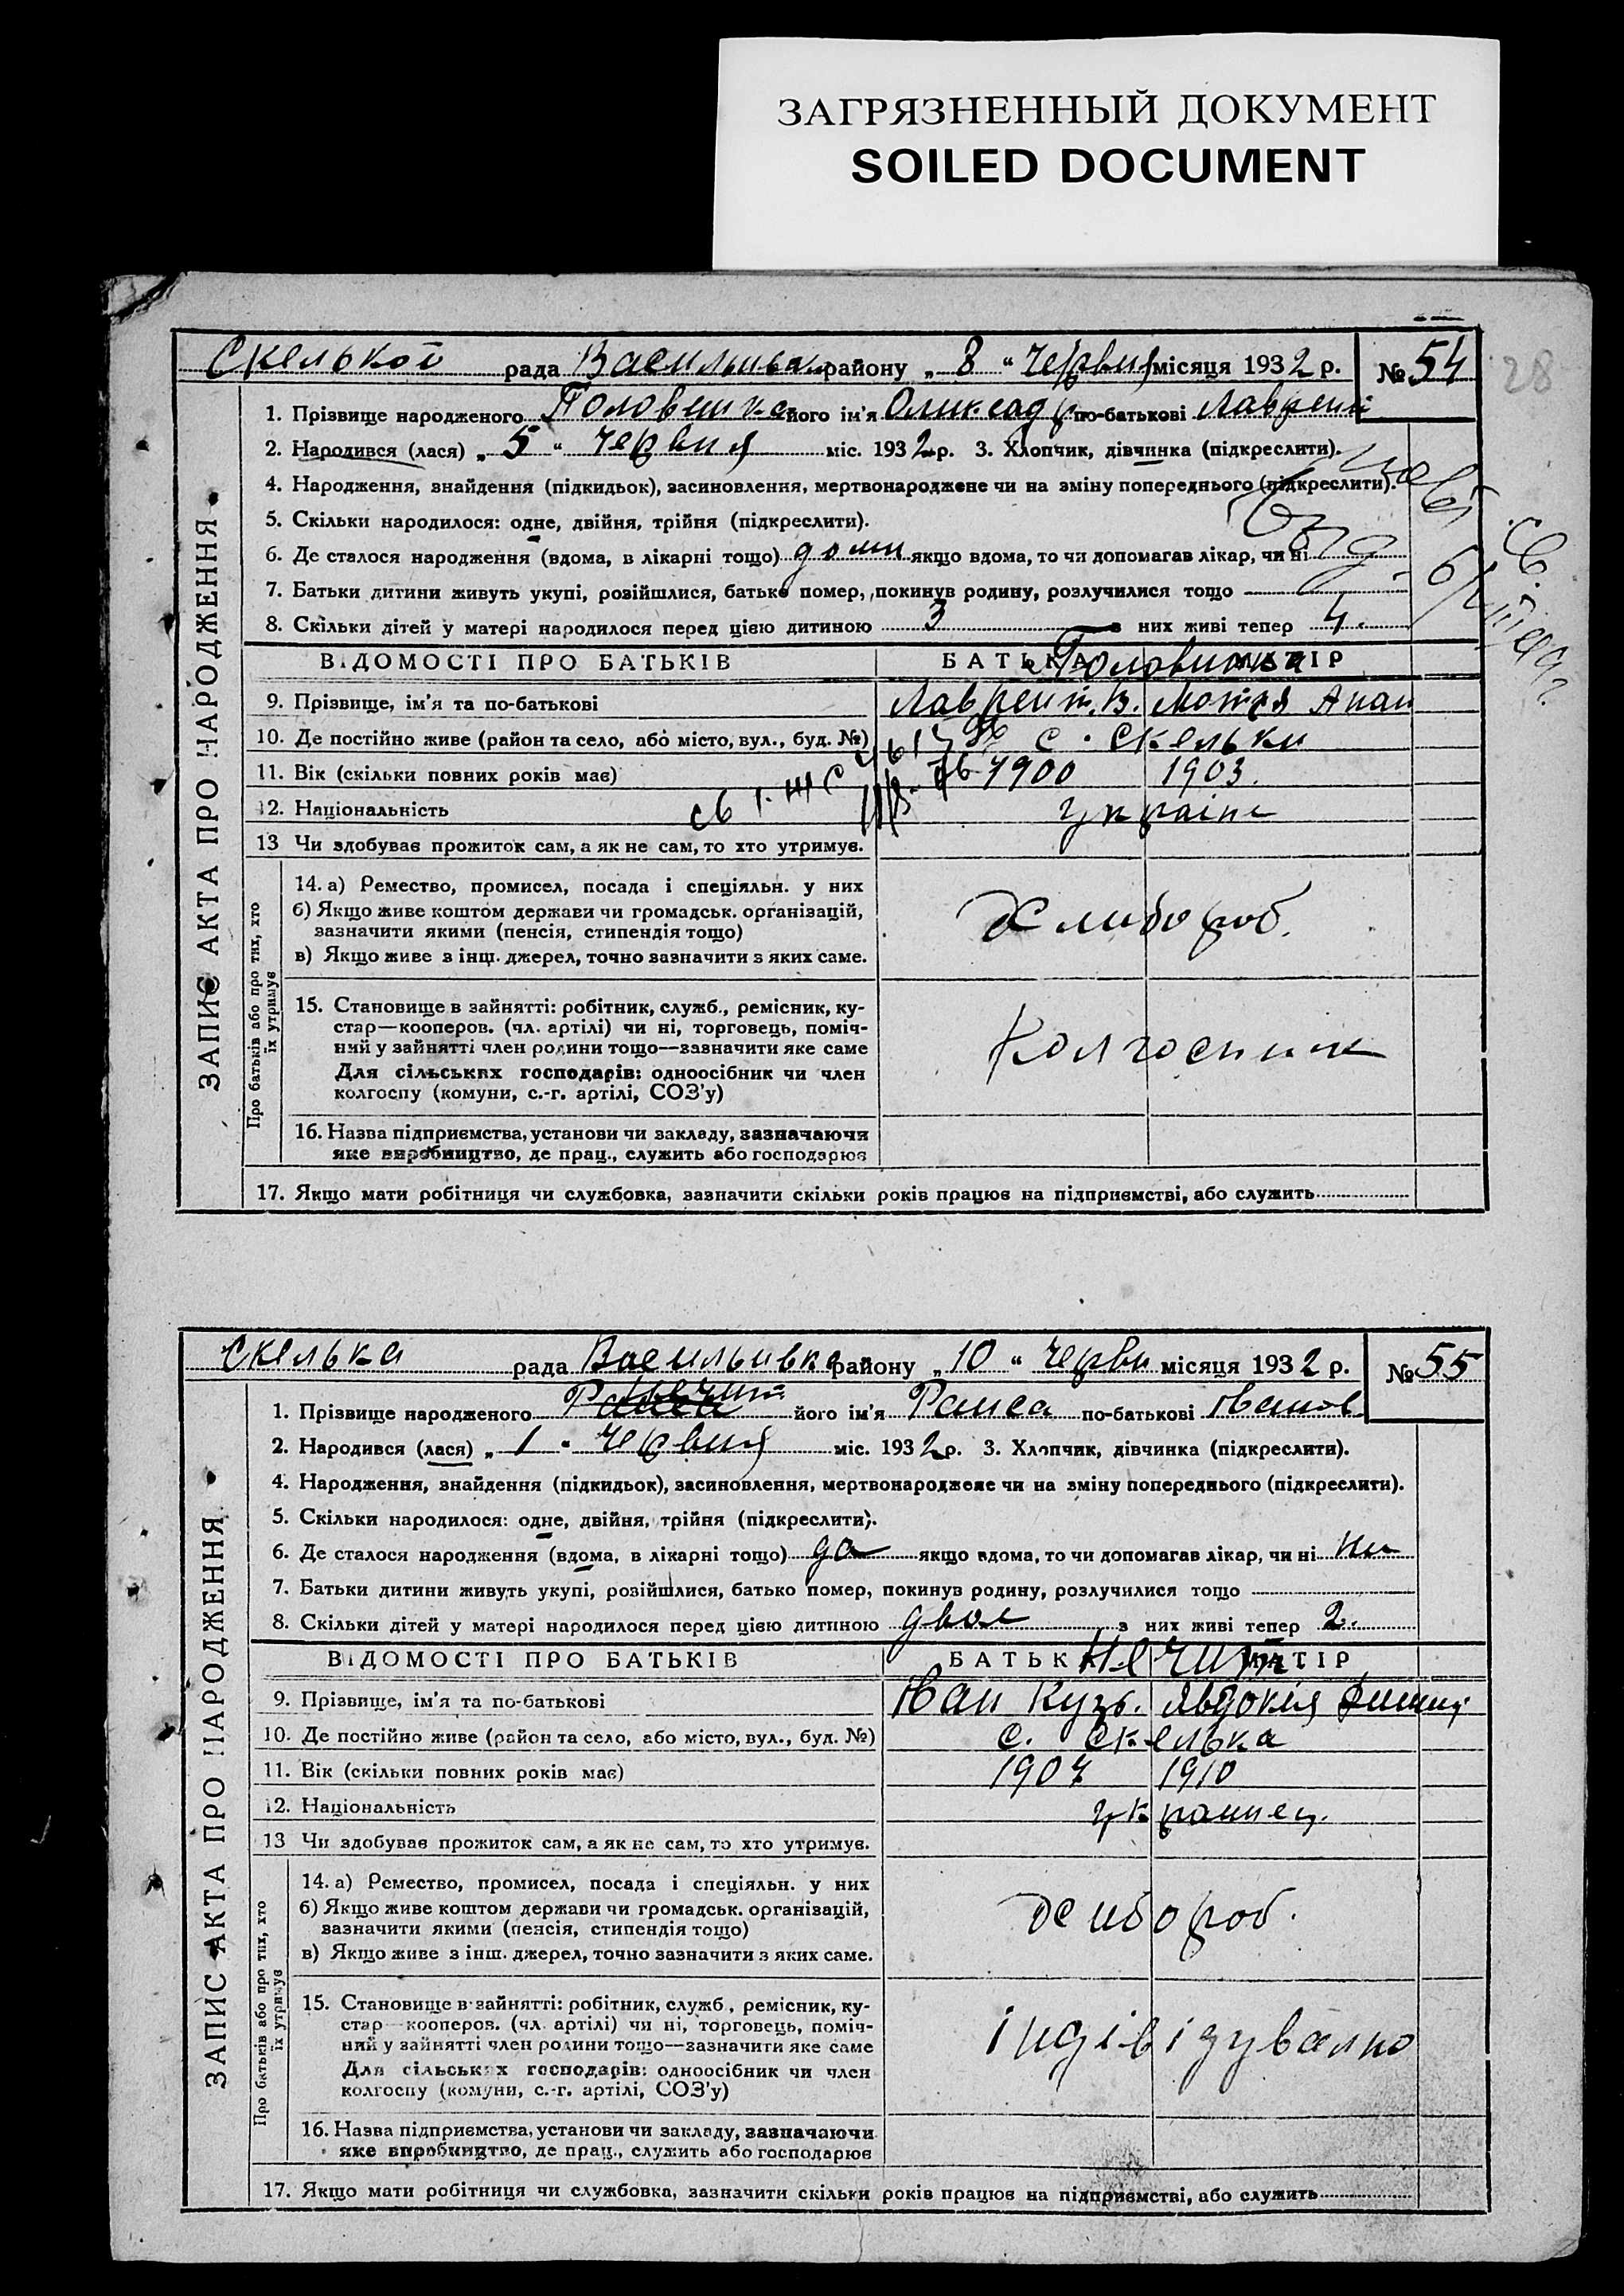 ЗАГРЯЗНЕННЫЙ ДОКУМЕНТ
SOILED DOCUMENT
28
Скелької рада Васильівк району „ 8 “ Червня місяця 1932 р. № 54
1. Прізвище народженого його ім'я Оликсадр по-батькові Лаврент
2. Народився (лася) „ 5 “ Червня міс. 1932 р. 3. Хлопчик, дівчинка (підкреслити).
4. Народження, знайдення (підкидьок), засиновлення, мертвонароджене чи на зміну попереднього (підкреслити).
5. Скільки народилося: одне, двійня, трійня (підкреслити).
6. Де сталося народження (вдома, в лікарні тощо) доми якщо вдома, то чи допомагав лікар, чи ні
7. Батьки дитини живуть укупі, розійшлися, батько помер, покинув родину, розлучилися тощо
8. Скільки дітей у матері народилося перед цією дитиною 3 з них живі тепер 4.
ВІДОМОСТІ ПРО БАТЬКІВ БАТЬКА МАТІР
9. Прізвище, ім'я та по-батькові Лаврент. В. Мотря Анан
10. Де постійно живе (район та село, або місто, вул., буд. №) с. Скельки
11. Вік (скільки повних років має) 1900 1903.
12. Національність украінс
13 Чи здобував прожиток сам, а як не сам, то хто утримув.
14. а) Ремество, промисел, посада і спеціяльн. у них
б) Якщо живе коштом держави чи громадськ. організацій,
зазначити якими (пенсія, стипендія тощо)
Хлибороб.
в) Якщо живе з інш. джерел, точно зазначити з яких саме.
15. Становище в зайнятті: робітник, служб., ремісник, ку-
стар—кооперов. (чл. артілі) чи ні, торговець, поміч-
ний у зайнятті член родини тощо—зазначити яке саме
Колгоспник
Для сільських господарів: одноосібник чи член
колгоспу (комуни, с.-г. артілі, СОЗ'у)
16. Назва підприємства, установи чи закладу, зазначаючи
яке виробництво, де прац., служить або господарює
17. Якщо мати робітниця чи службовка, зазначити скільки років працює на підприємстві, або служить
ЗАПИС АКТА ПРО НАРОДЖЕННЯ
Про батьків або про тих, хто
їх утримує
Скелька рада Васильивка району „ 10 “ Черви місяця 1932 р. № 55
1. Прізвище народженого Нечит його ім'я Раиса по-батькові Іванов
2. Народився (лася) „ 1 “ Червня міс. 1932 р. 3. Хлопчик, дівчинка (підкреслити).
4. Народження, знайдення (підкидьок), засиновлення, мертвонароджене чи на зміну попереднього (підкреслити).
5. Скільки народилося: одне, двійня, трійня (підкреслити).
6. Де сталося народження (вдома, в лікарні тощо) да якщо вдома, то чи допомагав лікар, чи ні ни
7. Батьки дитини живуть укупі, розійшлися, батько помер, покинув родину, розлучилися тощо
8. Скільки дітей у матері народилося перед цією дитиною двое з них живі тепер 2.
ВІДОМОСТІ ПРО БАТЬКІВ БАТЬКА МАТІР
Нечит
9. Прізвище, ім'я та по-батькові Іван Кузь. Явдокія
10. Де постійно живе (район та село, або місто, вул., буд. №) с. Скелька
11. Вік (скільки повних років має) 1907 1910
12. Національність украинец.
13 Чи здобував прожиток сам, а як не сам, то хто утримув.
14. а) Ремество, промисел, посада і спеціяльн. у них
б) Якщо живе коштом держави чи громадськ. організацій,
зазначити якими (пенсія, стипендія тощо)
Хлибороб.
в) Якщо живе з інш. джерел, точно зазначити з яких саме.
15. Становище в зайнятті: робітник, служб., ремісник, ку-
стар—кооперов. (чл. артілі) чи ні, торговець, поміч-
ний у зайнятті член родини тощо—зазначити яке саме
індівідувално
Для сільських господарів: одноосібник чи член
колгоспу (комуни, с.-г. артілі, СОЗ'у)
16. Назва підприємства, установи чи закладу, зазначаючи
яке виробництво, де прац., служить або господарює
17. Якщо мати робітниця чи службовка, зазначити скільки років працює на підприємстві, або служить
ЗАПИС АКТА ПРО НАРОДЖЕННЯ
Про батьків або про тих, хто
їх утримує